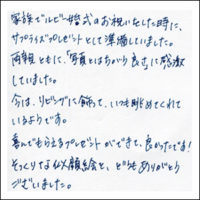 家族でルビー婚式のお祝いをした時に、
サプライズプレゼントとして準備していました。
両親ともに、「写真とはちがう良さ」に感激
していました。
今は、リビングに飾って、いつも眺めてくれて
いるようです。
喜んでもらえるプレゼントができて、良かったです！
そっくりな似顔絵を、どうもありがとう
ございました。